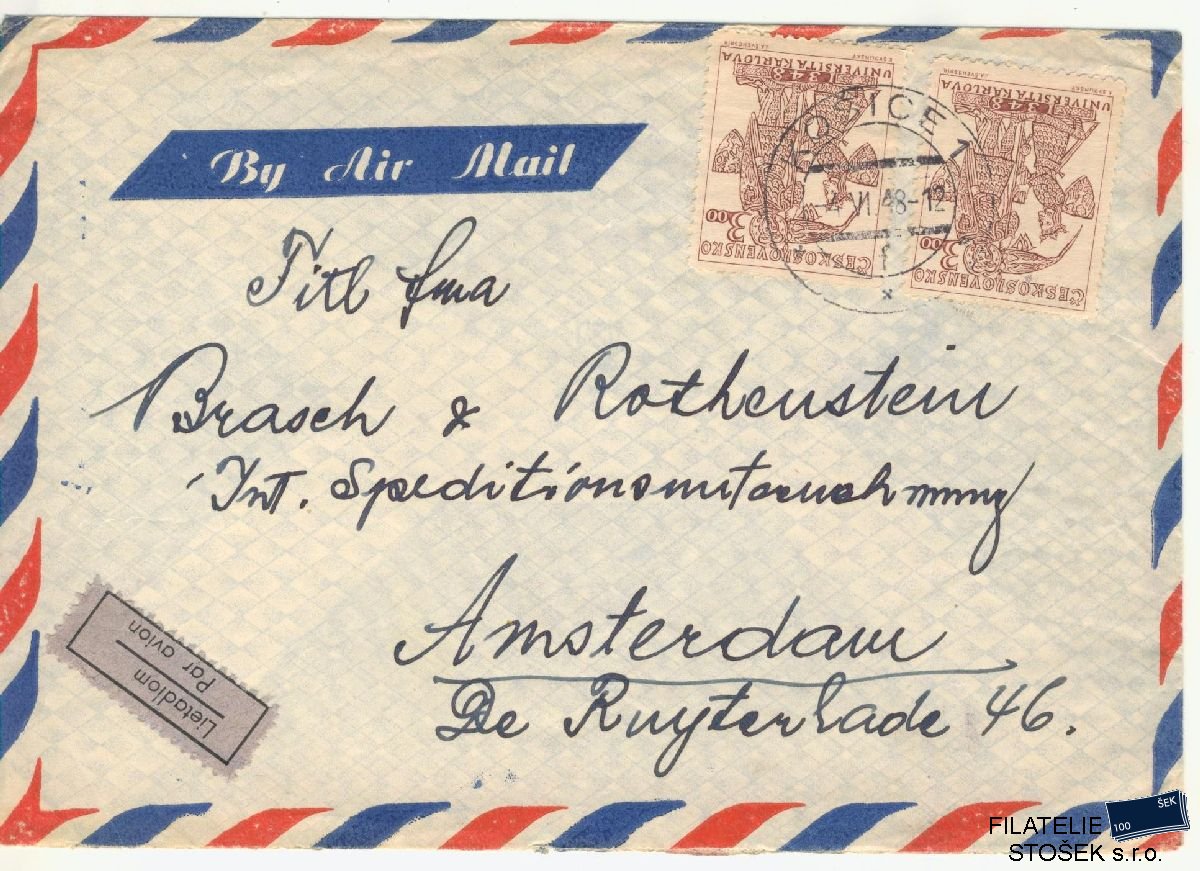 ČESKOSLOVENSKO
3.00
1348
UNIVERSITA KARLOVA
ČESKOSLOVENSKO
3.00
1348
UNIVERSITA KARLOVA
KOŠICE 1
-4.VI.48-12
By Air Mail
Titl fma
Brasch & Rothenstein
Int. Speditionsunternehmung
Amsterdam
De Ruyterkade 46.
Lietadlom
Par avion
FILATELIE
STOŠEK s.r.o.
100
ŠEK